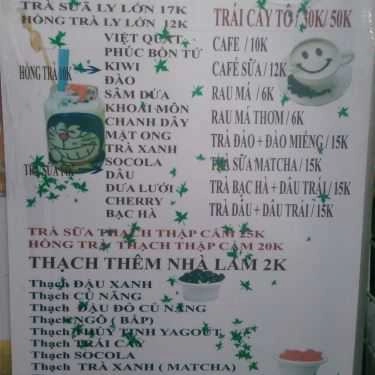 TRÀ SỮA LY LỚN 17K
HỒNG TRÀ LY LỚN 12K
VIỆT QUẤT
PHÚC BỒN TỬ
HỒNG TRÀ 10K
KIWI
ĐÀO
SÂM DỨA
KHOAI MÔN
CHANH DÂY
MẬT ONG
TRÀ XANH
SOCOLA
TRÀ SỮA
DÂU
DƯA LƯỚI
CHERRY
BẠC HÀ
TRÁI CÂY TÔ / 30K/ 50K
CAFE / 10K
CAFÉ SỮA / 12K
RAU MÁ / 6K
RAU MÁ THƠM / 6K
TRÀ ĐÀO + ĐÀO MIẾNG / 15K
TRÀ SỮA MATCHA / 15K
TRÀ BẠC HÀ + DÂU TRÁI / 15K
TRÀ DÂU + DÂU TRÁI / 15K
TRÀ SỮA THẠCH THẬP CẨM 25K
HỒNG TRÀ THẠCH THẬP CẨM 20K
THẠCH THÊM NHÀ LÀM 2K
Thạch ĐẬU XANH
Thạch CỦ NĂNG
Thạch ĐẬU ĐỎ CỦ NĂNG
Thạch NGÔ ( BẮP)
Thạch THỦY TINH YAGOUT
Thạch TRÁI CÂY
Thạch SOCOLA
Thạch TRÀ XANH ( MATCHA)